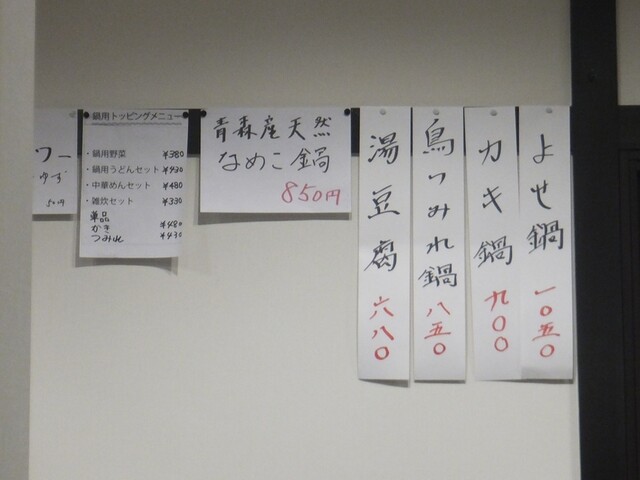 ワー
ゆず
50円
鍋用トッピングメニュー
・鍋用野菜 ¥380
・鍋用うどんセット ¥430
・中華めんセット ¥480
・雑炊セット ¥330
単品
かき ¥480
つみれ ¥430
青森産天然
なめこ鍋
850円
湯豆腐 六八〇
鳥つみれ鍋 八五〇
カキ鍋 九〇〇
よせ鍋 一〇五〇